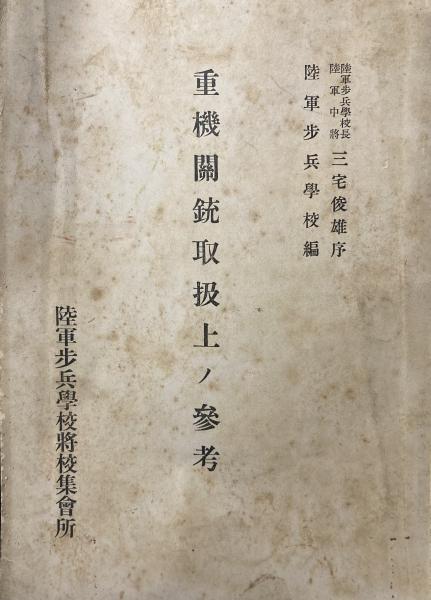 陸軍步兵學校長
陸軍中將
三宅俊雄序
陸軍步兵學校編
重機關銃取扱上ノ參考
陸軍步兵學校將校集會所